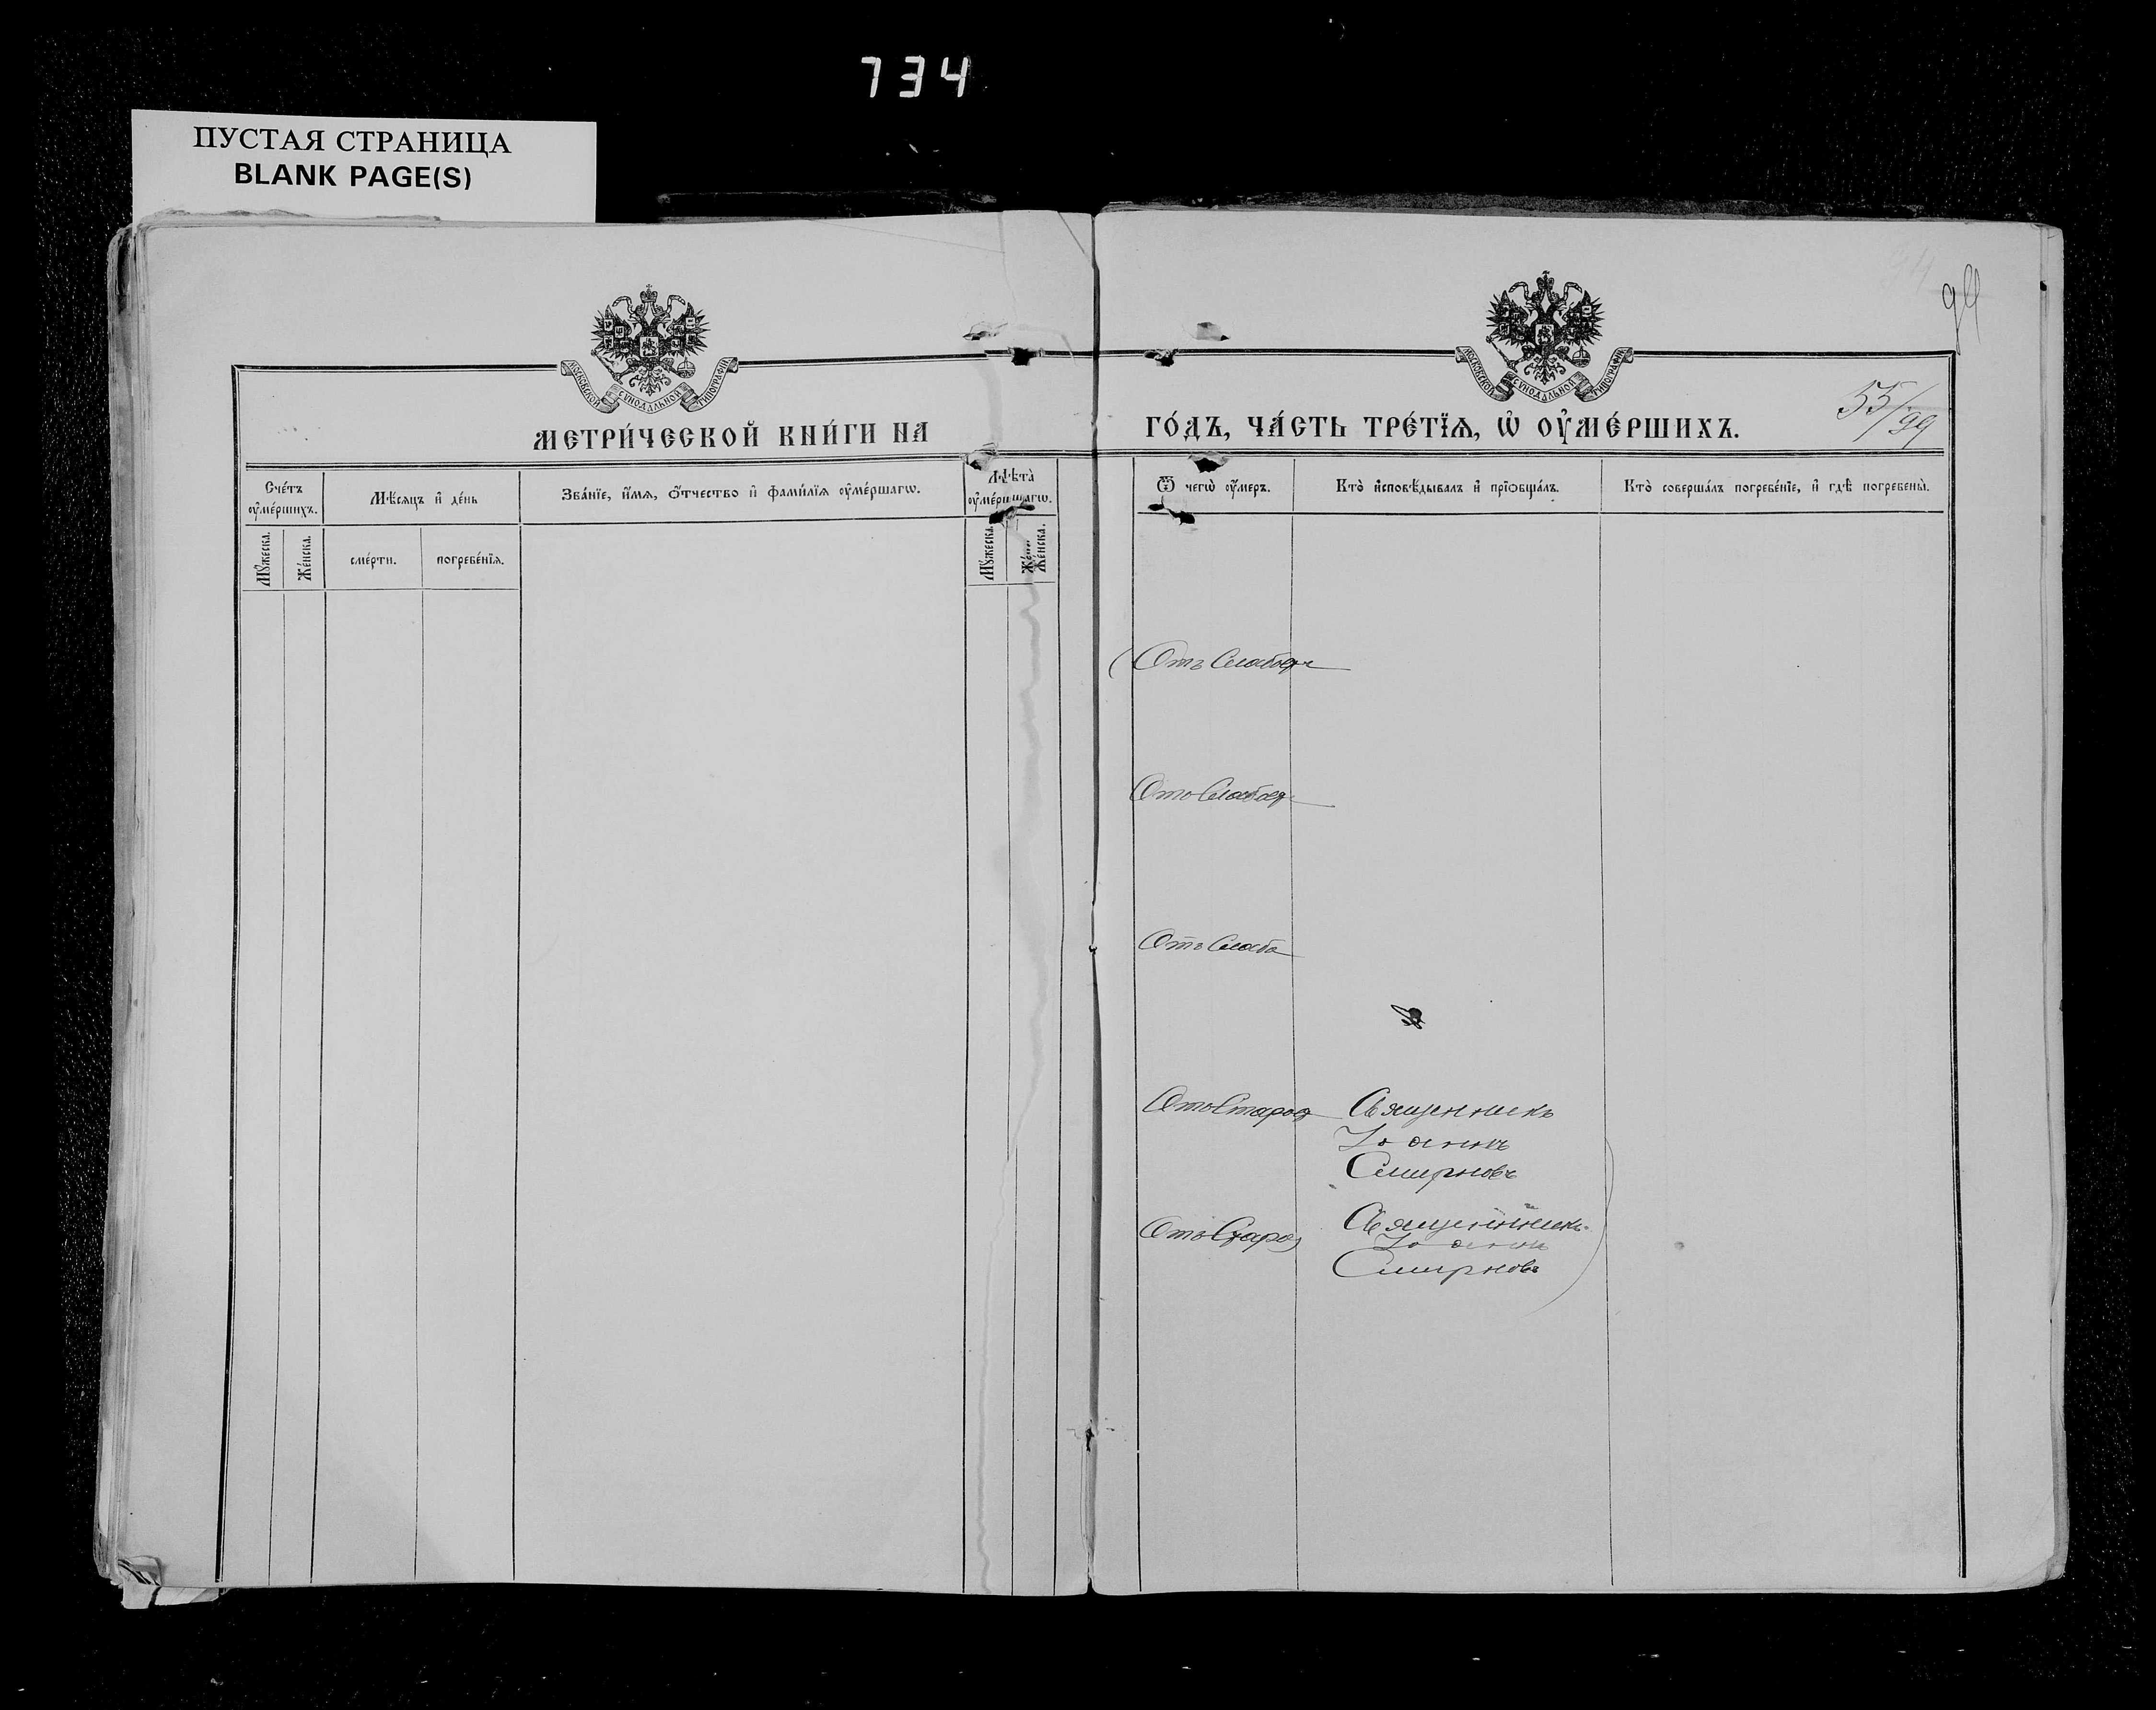 734
ПУСТАЯ СТРАНИЦА
BLANK PAGE(S)
МОСКОВСКОЙ СѴНОДАЛЬНОЙ ТИПОГРАФІИ
МЕТРИ́ЧЕСКОЙ КНИ́ГИ НА
Сче́тъ ᲂу҆ме́ршихъ.
Мѣ́сяцъ и҆ де́нь
Зва́нїе, и҆́мѧ, ѻ҆́тчество и҆ фами́лїѧ ᲂу҆ме́ршагѡ.
Лѣ̑та ᲂу҆ме́ршагѡ.
Мꙋ́жеска.
Же́нска.
сме́рти.
погребе́нїѧ.
Мꙋ́жеска.
Же́нска.
МОСКОВСКОЙ СѴНОДАЛЬНОЙ ТИПОГРАФІИ
ГО́ДЪ, ЧА́СТЬ ТРЕ́ТЇѦ, Ѡ҆ ОУ҆МЕ́РШИХЪ.
55/99
Ѿ чегѡ̀ ᲂу҆́меръ.
Кто̀ и҆сповѣ́дывалъ и҆ прїѡбща́лъ.
Кто̀ соверша́лъ погребе́нїе, и҆ гдѣ̀ погребены̀.
Отъ Слабости
Отъ Слабос
Отъ Слабо
Отъ Старос Священникъ
Іоаннъ
Смирновъ
Отъ Старос Священникъ
Іоаннъ
Смирновъ